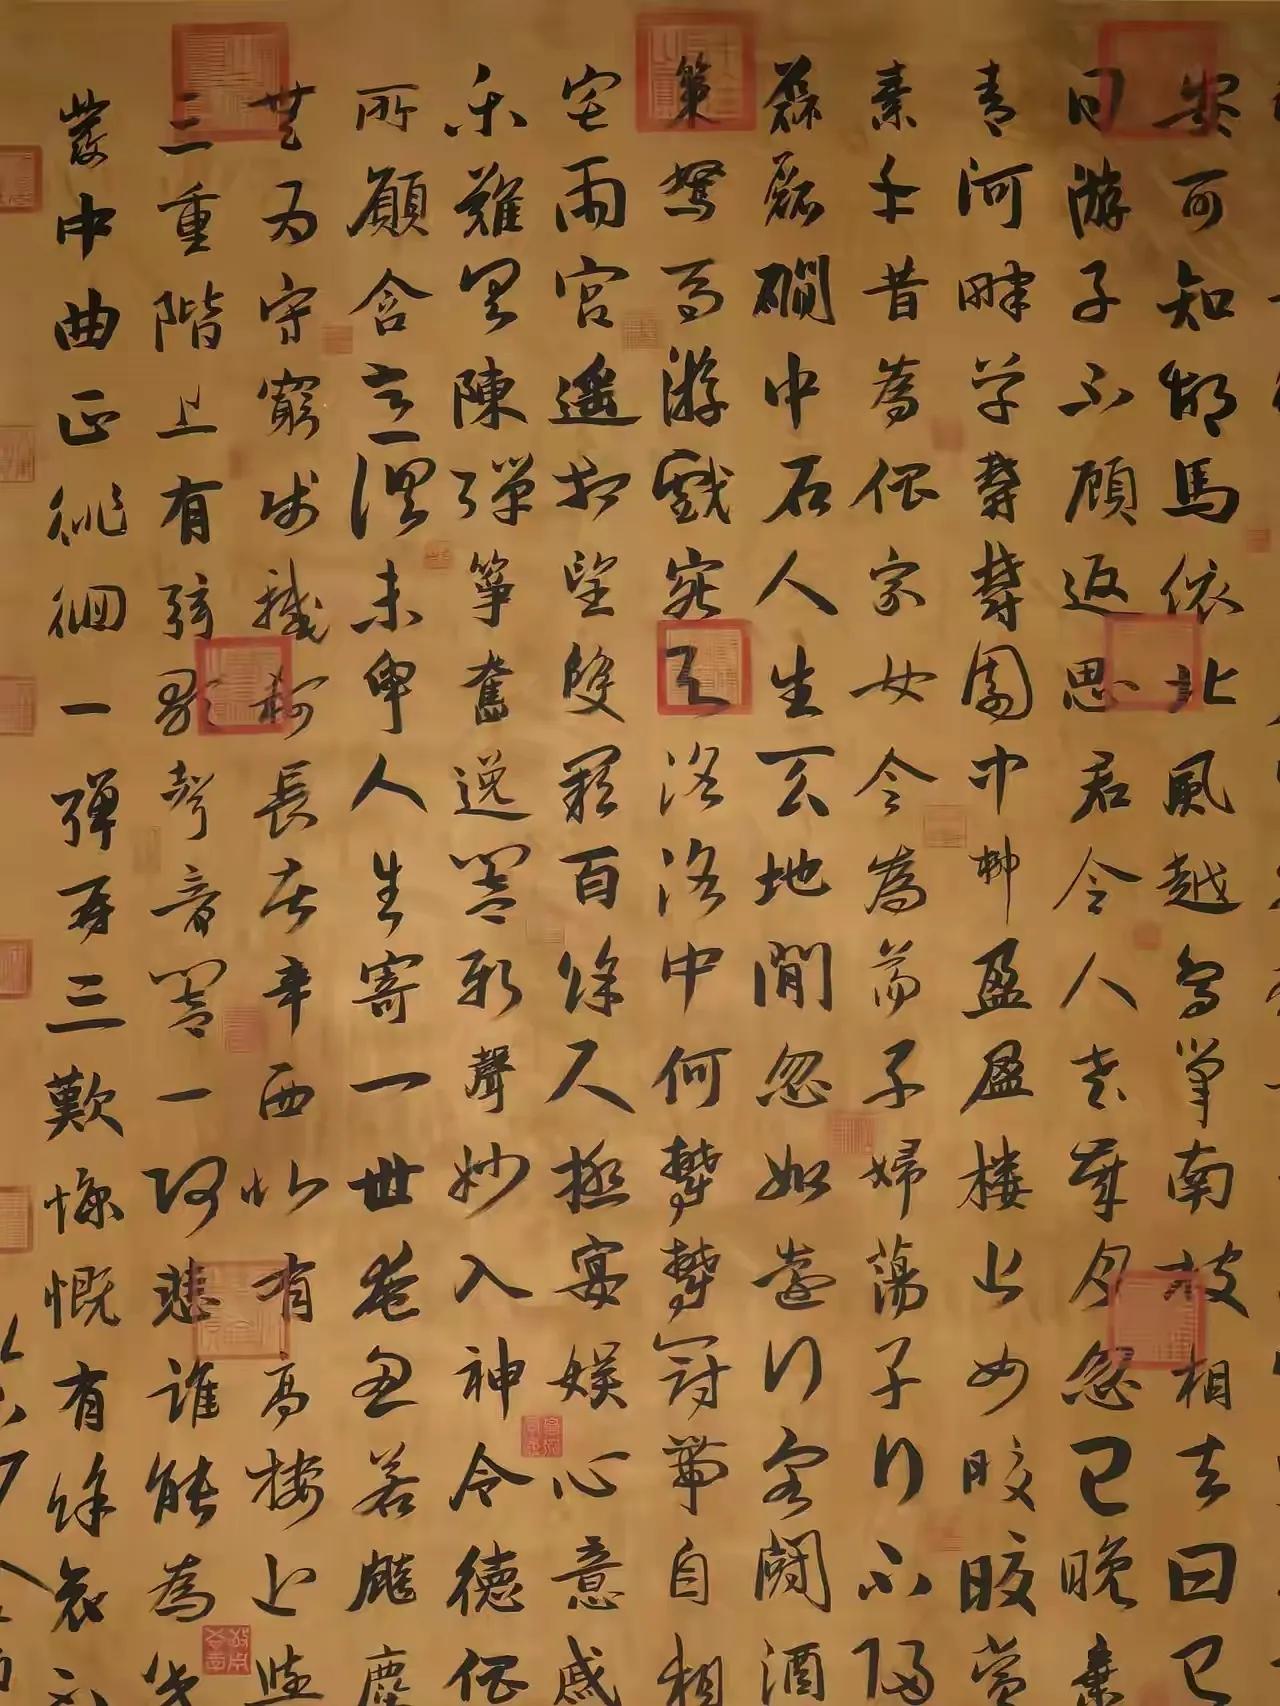 安可知胡馬依北風越鳥巢南枝相去日已
日游子不顧返思君令人老歲月忽已晚棄
青河畔草鬱鬱園中柳盈盈樓上女皎皎當
素手昔為倡家女今為蕩子婦蕩子行不歸
磊磊磵中石人生天地間忽如遠行客鬪酒
策駑馬游戲宛與洛洛中何鬱鬱冠帶自相
宅兩宮遙相望雙闕百餘尺極宴娛心意戚
樂難具陳彈箏奮逸響新聲妙入神令德倡
所願含意俱未申人生寄一世奄忽若飈塵
無為守窮賤轗軻長苦辛西北有高樓上與
三重階上有弦歌聲音響一何悲誰能為
發中曲正徘徊一彈再三歎慷慨有餘哀不